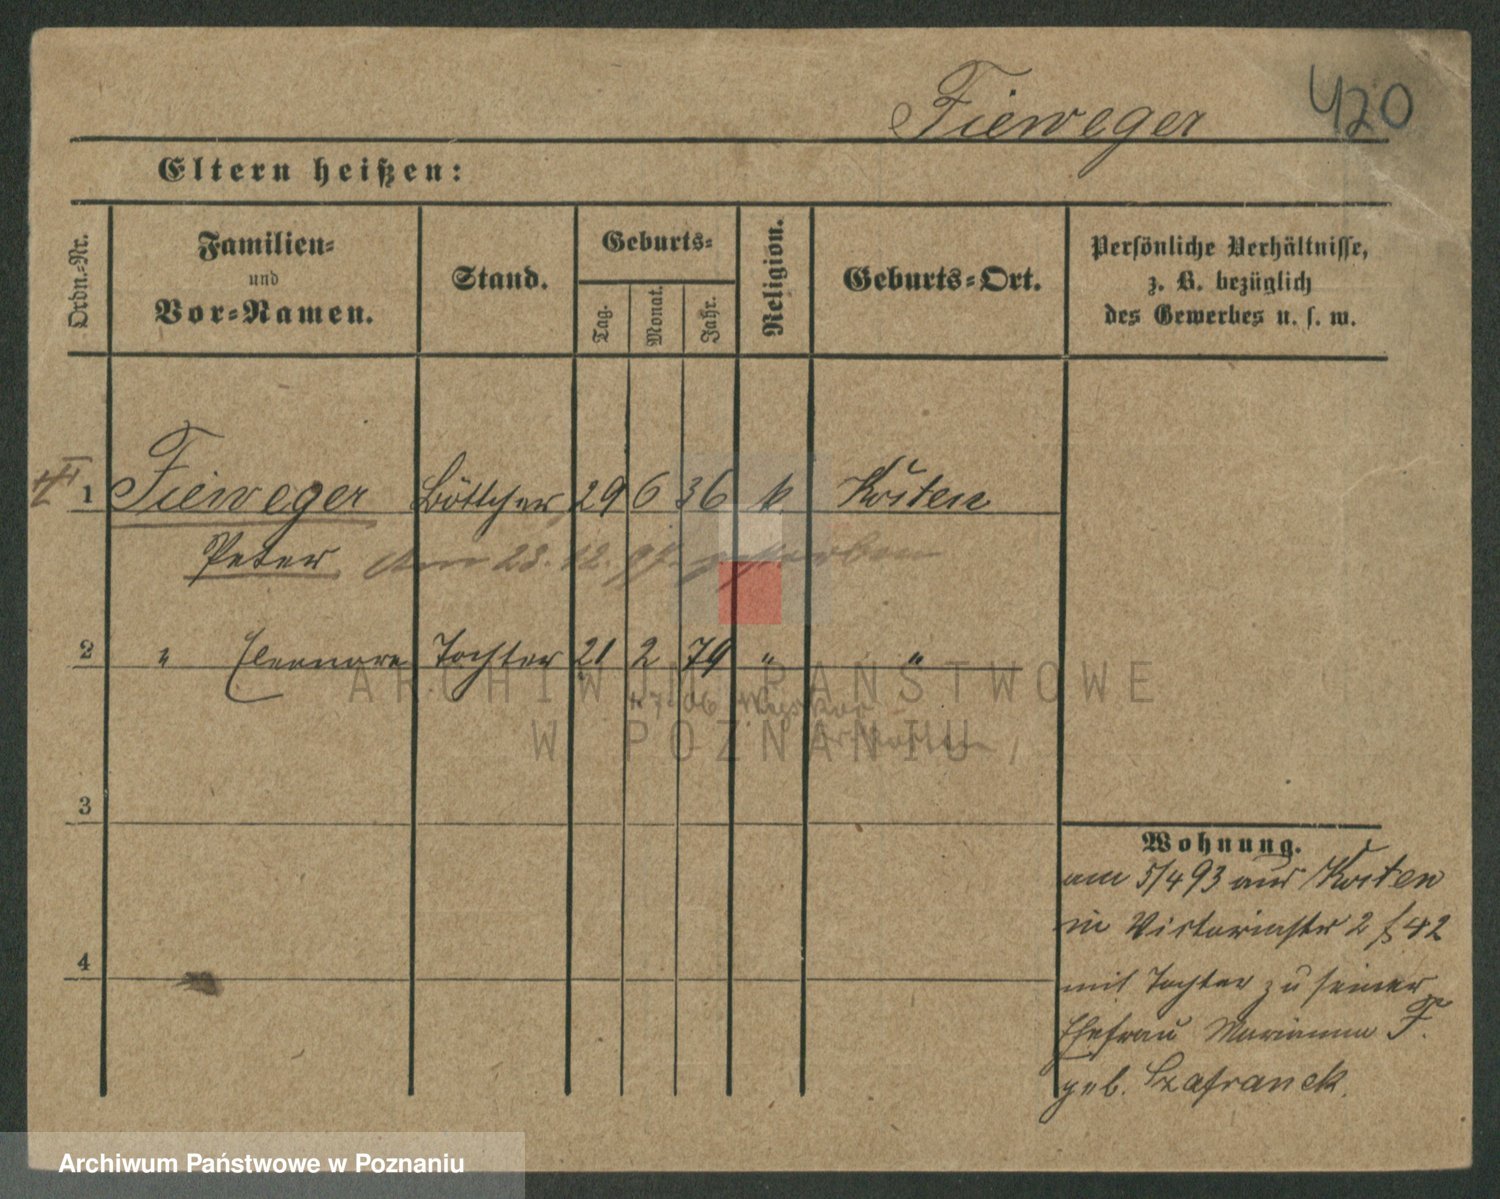 Fieweger
420
Eltern heißen:
Ordn.-Nr.
Familien-
und
Vor-Namen.
Stand.
Geburts-
Tag.
Monat.
Jahr.
Religion.
Geburts-Ort.
Persönliche Verhältnisse,
z. B. bezüglich
des Gewerbes u. s. w.
1 Fieweger Böttcher 29 6 36 k. Kosten
Peter am 23. 12. 97. gestorben
2 " Eleonore Tochter 21 2 79 " "
ARCHIWUM PAŃSTWOWE
W POZNANIU
3
4
Wohnung.
am 5/4 93 aus Kosten
in Victoriastr 2 42
mit Tochter zu seiner
Ehefrau Marianna F.
geb. Szafranek.
Archiwum Państwowe w Poznaniu